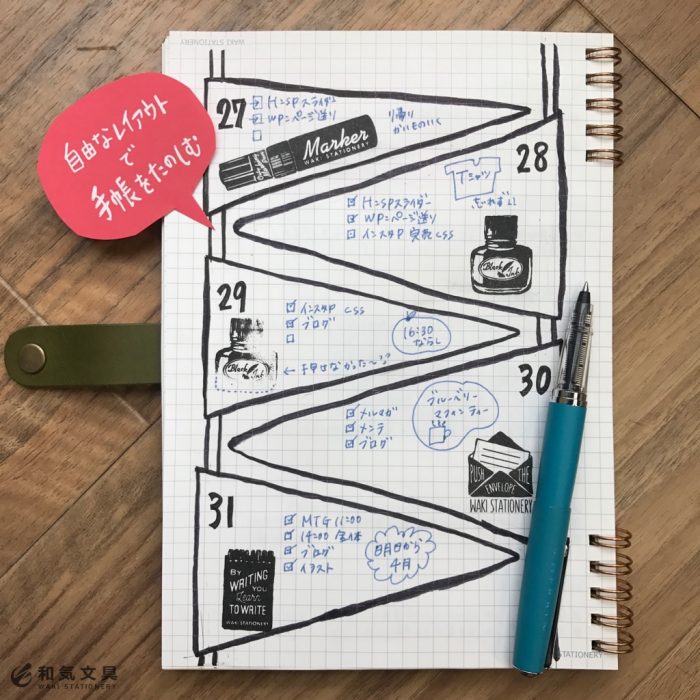 WAKI STATIONERY
自由なレイアウト
で
手帳をたのしむ
27
H=SPスライダー
WP=ページ送り
帰り
かいものいく
Marker
WAKI STATIONERY
28
Tシャツ
H=SPスライダー
WP=ページ送り
インスタP 実装css
Black Ink
29
インスタP css
ブログ
16:30
ならし
Black Ink
30
ブルーベリー
マフィンティー
メルマガ
メンテ
ブログ
PUSH THE
ENVELOPE
WAKI STATIONERY
31
MTG 11:00
14:00 全体
ブログ
イラスト
明日から
4月
BY
WRITING
YOU
Learn
TO WRITE
WAKI STATIONERY
STATIONERY
和気文具
WAKI STATIONERY